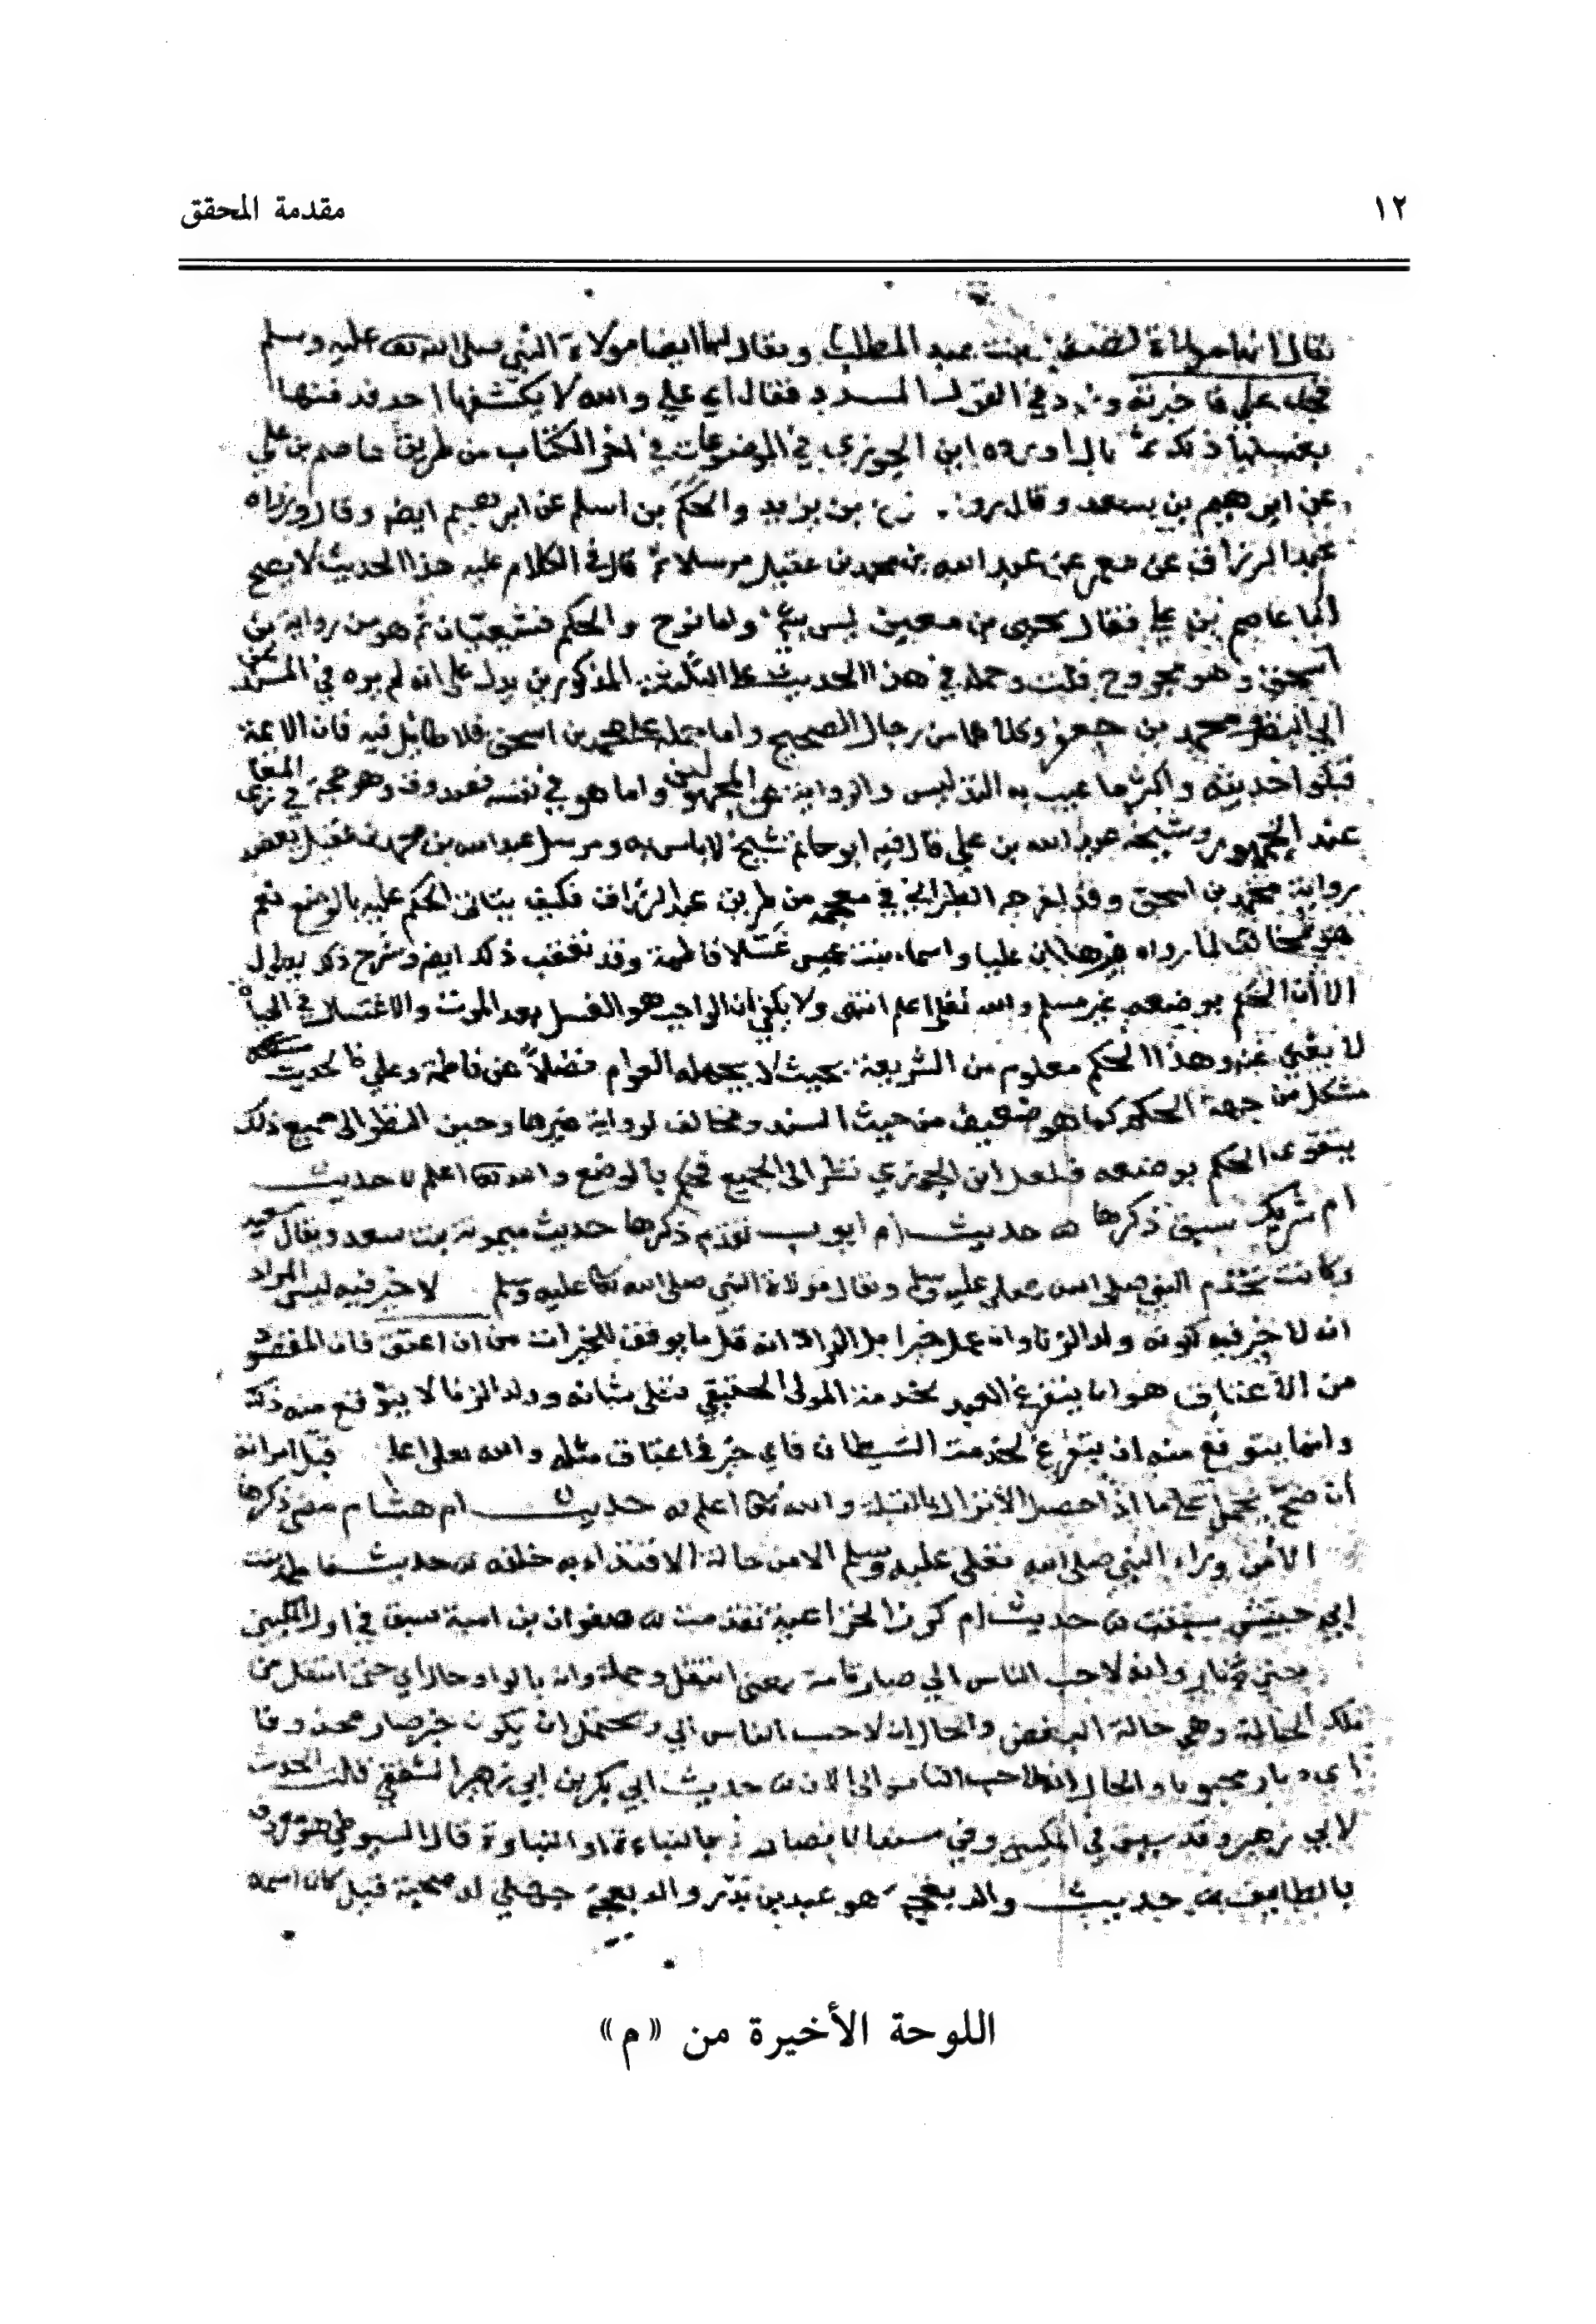 ١٢
مقدمة المحقق
بنت عبد المطلب ويقال لها ايضا مولاة النبي صلى الله تعالى عليه وسلم
علي فاخبرته في القول المسدد فقال اي علي والله لا يكشفها احد فدفنها
بغسلها ذلك ابن الجوزي في الموضوعات في اخر الكتاب من طريق عاصم بن علي
عن ابرهيم بن سعد وقال بن يزيد والحكم بن اسلم عن ابرهيم ايضا وقال ورواه
عبد الرزاق عن معمر عن عبد الله بن محمد بن عقيل مرسلا ثم قال في الكلام عليه هذا الحديث لا يصح
اما عاصم بن علي فقال يحيى بن معين ليس بشيء واما نوح والحكم فشيعيان ثم هو من رواية بن
اسحق وهو مجروح قلت وحمله في هذا الحديث على الثلثة المذكورين يدل على انه لم يره في المسند
محمد بن جعفر وكلاهما من رجال الصحيح واما حمله على محمد بن اسحق فلا طائل فيه فان الائمة
قبلوا حديثه واكثر ما عيب به التدليس والرواية عن المجهولين واما هو في نفسه فصدوق وهو حجة في المغازي
عند الجمهور وشيخه عبيد الله بن علي قال فيه ابو حاتم شيخ لا باس به ومرسل عبد الله بن محمد بن عقيل يعضد
برواية محمد بن اسحق وقد اخرجه الطبراني في معجمه من طريق عبد الرزاق فكيف يتاتى الحكم عليه بالوضع نعم
هو مخالف لما رواه غيرهما ان عليا واسماء بنت عميس غسلا فاطمة وقد تعقب ذلك ايضا وشرح ذلك يطول
الا ان الحكم بوضعه غير مسلم والله تعالى اعلم انتهى ولا يخفى ان الواجب هو الغسل بعد الموت والاغتسال في الحياة
لا يغني عنه وهذا الحكم معلوم من الشريعة بحيث لا يجهله العوام فضلا عن فاطمة وعلي فالحديث
مشكل من جهة الحكم كما هو ضعيف من حيث السند ومخالف لرواية غيرها وحين النظر الى جميع ذلك
يتقوى الحكم بوضعه فلعل ابن الجوزي نظر الى الجميع فحكم بالوضع والله تعالى اعلم حديث
ام شريك سبق ذكرها حديث ام ايوب تقدم ذكرها حديث ميمونة بنت سعد ويقال سعيد
وكانت تخدم النبي صلى الله تعالى عليه وسلم ويقال مولاة النبي صلى الله تعالى عليه وسلم لا خير فيه ليس المراد
انه لا خير فيه لكونه ولد الزنا وان عمل خيرا بل المراد انه قل ما يوفق للخيرات من ان اعتق فان المقصود
من الاعتاق هو ان يتفرغ العبد لخدمة المولى الحقيقي تعالى شانه وولد الزنا لا يتوقع منه ذلك
وانما يتوقع منه ان يتفرغ لخدمة الشيطان فاي خير في اعتاق مثله والله تعالى اعلم قبل امراته
ان صح يحمل على ما اذا حصل الانزال بالقبلة والله تعالى اعلم حديث ام هشام مضى ذكرها
الا من وراء النبي صلى الله تعالى عليه وسلم الا من حالة الاقتداء به خلفه حديث فاطمة بنت
ابي حبيش سبقت حديث ام كرز الخزاعية تقدمت صفوان بن امية سبق في اول المكيين
الناس الي صار تامة بمعنى انتقل وجملة وانه بالواو حال اي حتى انتقل من
تلك الحالة وهي حالة البغض والحال انه لاحب الناس الي ويحتمل ان يكون خبر صار محذوفا
اي صار محبوبا والحال انه لاحب الناس الي الان حديث ابي بكر بن ابي زهير الثقفي قلت الحديث
لابي زهير وقد سبق في المكيين وفي مسند الانصار بالنباءة او النباوة قال السيوطي هو معروف
بالطائف حديث والد بعجة هو عبد بن بدر والد بعجة جهني له صحبة قيل كان اسمه
اللوحة الأخيرة من «م»